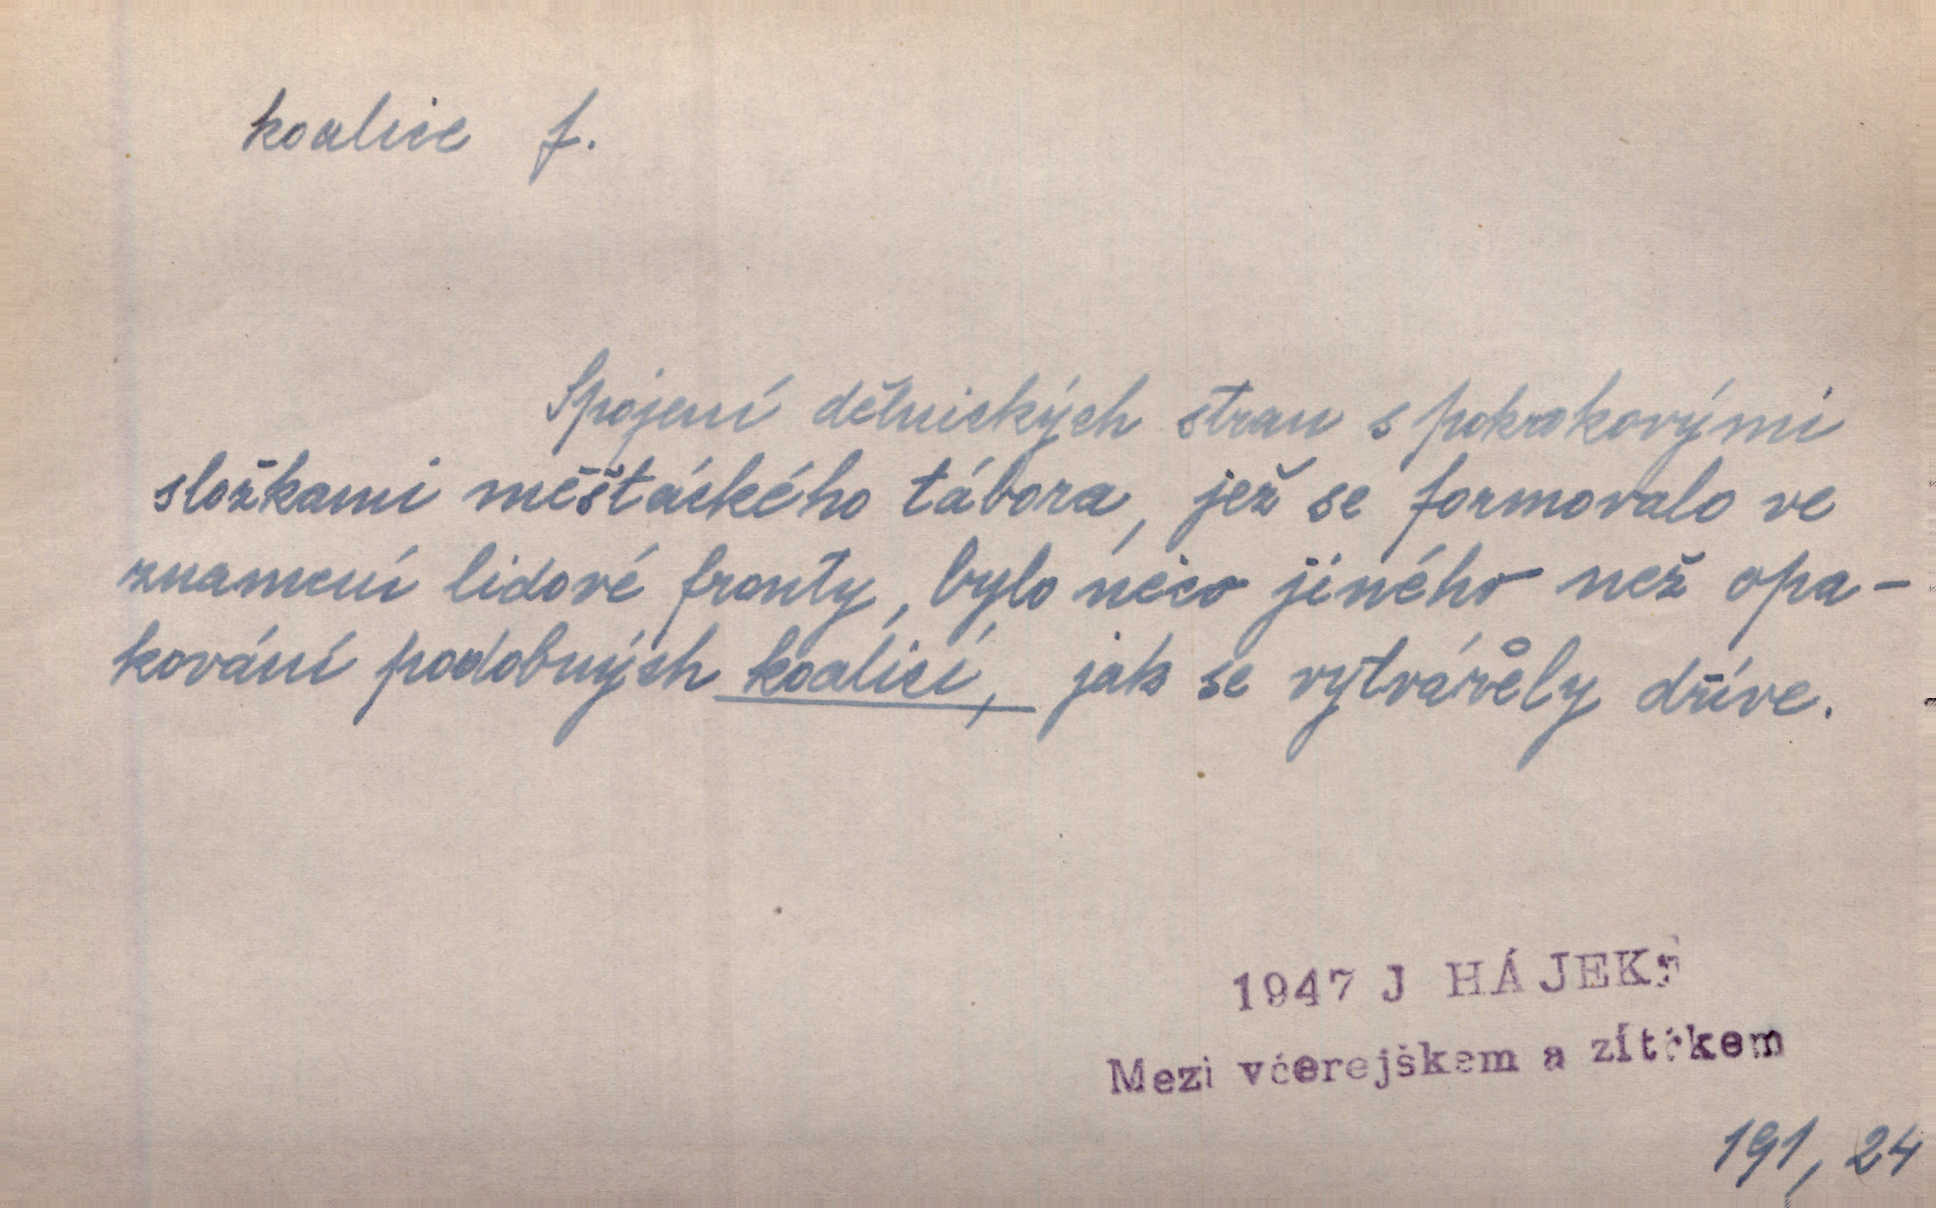 koalice f.
Spojení dělnických stran s pokrokovými
složkami měšťáckého tábora, jež se formovalo ve
znamení lidové fronty, bylo něco jiného než opa-
kování podobných koalicí, jak se vytvářely dříve.
1947 J HÁJEK
Mezi včerejškem a zítřkem
191, 24